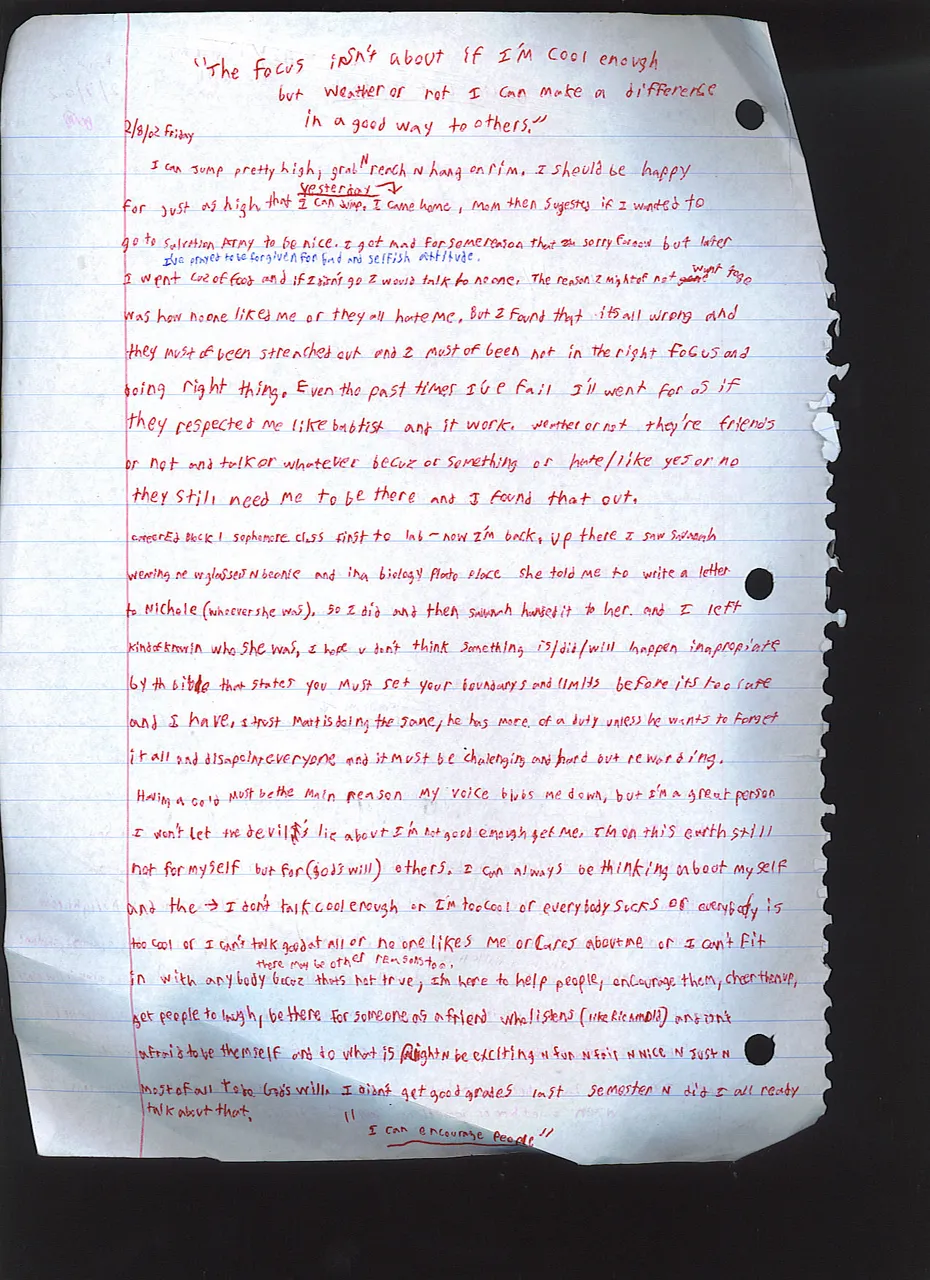 "The focus isn't about if I'm cool enough
but weather or not I can make a difference
in a good way to others."
2/8/02 Friday
I can jump pretty high, grab N reach N hang on rim. I should be happy
yesterday
for just as high that I can jump. I came home, mom then sugested if I wanted to
go to Salvation Army to be nice. I got mad for some reason that sorry for now but later
I've prayed to be forgiven for bad and selfish attitude.
I went cuz of food and if I didn't go I would talk to no one. The reason I might of not want to go
was how no one liked me or they all hate me. But I found that its all wrong and
they must of been streached out and I must of been not in the right focus and
doing right thing. Even the past times I've fail I'll went for as if
they respected me like babtist and it work. weather or not they're friends
or not and talk or whatever becuz or something or hate/like yes or no
they still need me to be there and I found that out.
Block 1 sophomore class first to lab - now I'm back, up there I saw Savannah
wearing glasses N beanie and in a biology place she told me to write a letter
to Nichole (whoever she was). so I did and then Savannah handed it to her. and I left
kind of knowin who she was, I hope u don't think something is/did/will happen inapropiate
by th bible that states you must set your boundarys and limits before its too late
and I have, I trust Matt is doing the same, he has more of a duty unless he wants to forget
it all and disapoint everyone and it must be chalenging and hard but rewarding.
Having a cold must be the main reason my voice me down, but I'm a great person
I won't let the devil's lie about I'm not good enough get me. I'm on this earth still
not for myself but for (god's will) others. I can always be thinking about myself
and the → I don't talk cool enough or I'm too cool or everybody sucks or everybody is
too cool or I can't talk good at all or no one likes me or cares about me or I can't fit
there may be other reasons too.
in with anybody becuz thats not true, I'm here to help people, encourage them, cheer them up,
get people to laugh, be there for someone as a friend who listens (like Ric Arnold) and isn't
afraid to be themself and do what is Right N be exciting N fun N fair N Nice N Just N
most of all To do God's will. I didn't get good grades last semester N did I all ready
talk about that.
"I can encourage people"